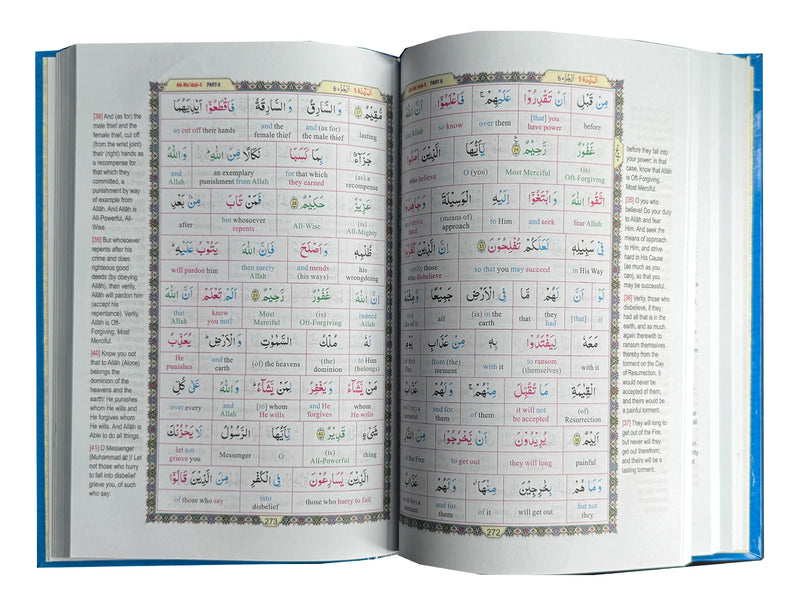 المَائِدَة 5 الجُزْء 6
PART-6
مِنْ قَبْلِ أَنْ تَقْدِرُوْا عَلَيْهِمْ ۚ فَاعْلَمُوْٓا أَنَّ اللهَ
before [that] you have power over them so know that Allah
غَفُوْرٌ رَّحِيْمٌ يٰٓاَيُّهَا الَّذِيْنَ اٰمَنُوا
(is) Oft-Forgiving Most Merciful O (you) who believe
اتَّقُوا اللهَ وَابْتَغُوْٓا اِلَيْهِ الْوَسِيْلَةَ وَجَاهِدُوْا
fear Allah and seek to Him (means of) approach and strive hard
فِيْ سَبِيْلِهٖ لَعَلَّكُمْ تُفْلِحُوْنَ اِنَّ الَّذِيْنَ كَفَرُوْا
in His Way so that you may succeed verily those who disbelieve
لَوْ اَنَّ لَهُمْ مَّا فِى الْاَرْضِ جَمِيْعًا وَّمِثْلَهٗ
if [that] they had (is) in the earth all and like of it
مَعَهٗ لِيَفْتَدُوْا بِهٖ مِنْ عَذَابِ يَوْمِ
with it to ransom (themselves) with it from (the) torment (of) Day
الْقِيٰمَةِ مَا تُقُبِّلَ مِنْهُمْ ۚ وَلَهُمْ عَذَابٌ
(of) Resurrection it will not be accepted of them and for them
اَلِيْمٌ يُرِيْدُوْنَ اَنْ يَّخْرُجُوْا مِنَ النَّارِ
painful they will long to get out of the Fire
وَمَا هُمْ بِخٰرِجِيْنَ مِنْهَا ۫ وَلَهُمْ
but not they will get out of it and for them
272
before they fall into
your power; in that
case, know that Allâh
is Oft-Forgiving,
Most Merciful.
[35] O you who
believe! Do your
duty to Allâh and
fear Him. And seek
the means of
approach to Him,
and strive hard
in His Cause
(as much as you
can), so that you
may be successful.
[36] Verily, those who
disbelieve, if they
had all that is in the
earth, and as much
again therewith to
ransom themselves
thereby from the
torment on the Day
of Resurrection, it
would never be
accepted of them,
and theirs would be
a painful torment.
[37] They will long to
get out of the Fire,
but never will they
get out therefrom;
and theirs will be a
lasting torment.
المَائِدَة 5 الجُزْء 6
Al-Ma'idah-5 PART-6
مُّقِيْمٌ وَالسَّارِقُ وَالسَّارِقَةُ فَاقْطَعُوْٓا اَيْدِيَهُمَا
lasting and (as for) the male thief and the female thief so cut off their hands
جَزَآءًۢ بِمَا كَسَبَا نَكَالًا مِّنَ اللهِ ؕ وَاللهُ
(as) a recompense for that which they earned an exemplary punishment from Allah and Allah
عَزِيْزٌ حَكِيْمٌ فَمَنْ تَابَ مِنْۢ بَعْدِ
(is) All-Mighty All-Wise but whosoever repents after
ظُلْمِهٖ وَاَصْلَحَ فَاِنَّ اللهَ يَتُوْبُ عَلَيْهِ ؕ
his wrongdoing and mends (his ways) then surely Allah will pardon him
اِنَّ اللهَ غَفُوْرٌ رَّحِيْمٌ اَلَمْ تَعْلَمْ اَنَّ اللهَ
indeed Allah (is) Oft-Forgiving Most Merciful know you not? that Allah
لَهٗ مُلْكُ السَّمٰوٰتِ وَالْاَرْضِ ؕ يُعَذِّبُ
to Him (belongs) (the) dominion (of) the heavens and the earth He punishes
مَنْ يَّشَآءُ وَيَغْفِرُ لِمَنْ يَّشَآءُ ؕ وَاللهُ عَلٰى كُلِّ
whom He wills and He forgives [to] whom He wills and Allah over every
شَيْءٍ قَدِيْرٌ يٰٓاَيُّهَا الرَّسُوْلُ لَا يَحْزُنْكَ
thing (is) All-Powerful O Messenger let not grieve you
الَّذِيْنَ يُسَارِعُوْنَ فِى الْكُفْرِ مِنَ الَّذِيْنَ قَالُوْٓا
those who hurry to fall into disbelief of those who say
273
[38] And (as for) the
male thief and the
female thief, cut off
(from the wrist joint)
their (right) hands as
a recompense for
that which they
committed, a
punishment by way
of example from
Allâh. And Allâh is
All-Powerful, All-
Wise.
[39] But whosoever
repents after his
crime and does
righteous good
deeds (by obeying
Allâh), then verily,
Allâh will pardon him
(accept his
repentance). Verily,
Allâh is Oft-
Forgiving, Most
Merciful.
[40] Know you not
that to Allâh (Alone)
belongs the
dominion of the
heavens and the
earth! He punishes
whom He wills and
He forgives whom
He wills. And Allâh is
Able to do all things.
[41] O Messenger
(Muhammad ﷺ)! Let
not those who hurry
to fall into disbelief
grieve you, of such
who say: